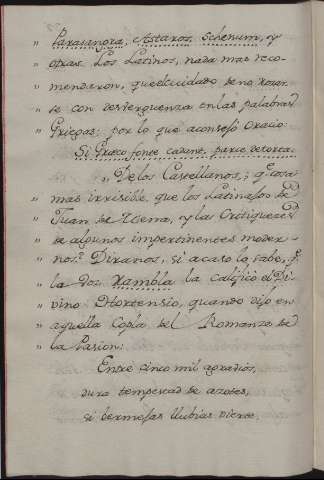 " Parasanga, Astaros, Schenum, y
" otras. Los Latinos, nada mas reco-
" mendaron, que el cuidado de no rozar-
" se con desverguenza en las palabras
" Griegas; por lo que aconsejó Oracio:
Si Græco fonte cadent, parce detorta.
" De los Castellanos, ¿q.e cosa
" mas irrisible, que los Latinajos de
" Juan de Mena, y las
" de algunos impertinentes moder-
" nos? Diranos, si acaso lo sabe, q.e
" la voz Rambla la calificó el Di-
" vino Hortensio, quando dijo en
" aquella Copla del Romance de
" la Pasion:
Entre cinco mil agravios,
dura tempestad de azotes,
si bermejas llubias vierte,